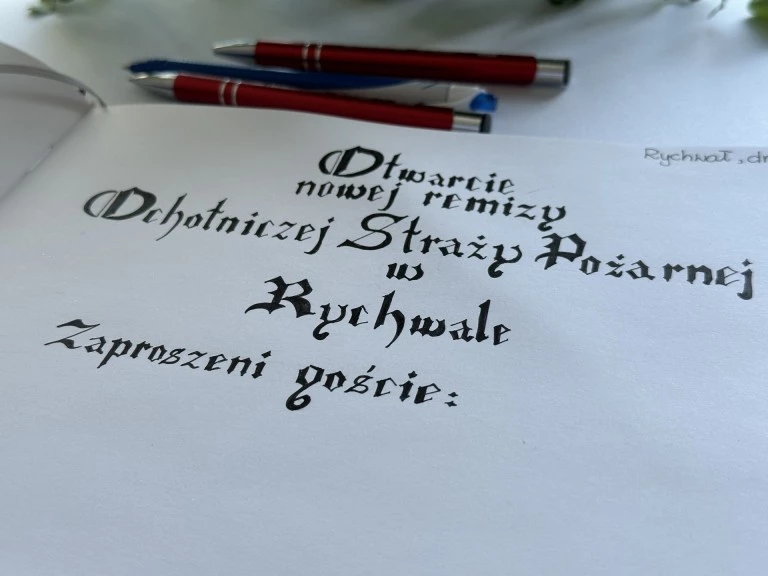 Rychwał, dn
Otwarcie
nowej remizy
Ochotniczej Straży Pożarnej
w
Rychwale
Zaproszeni goście: